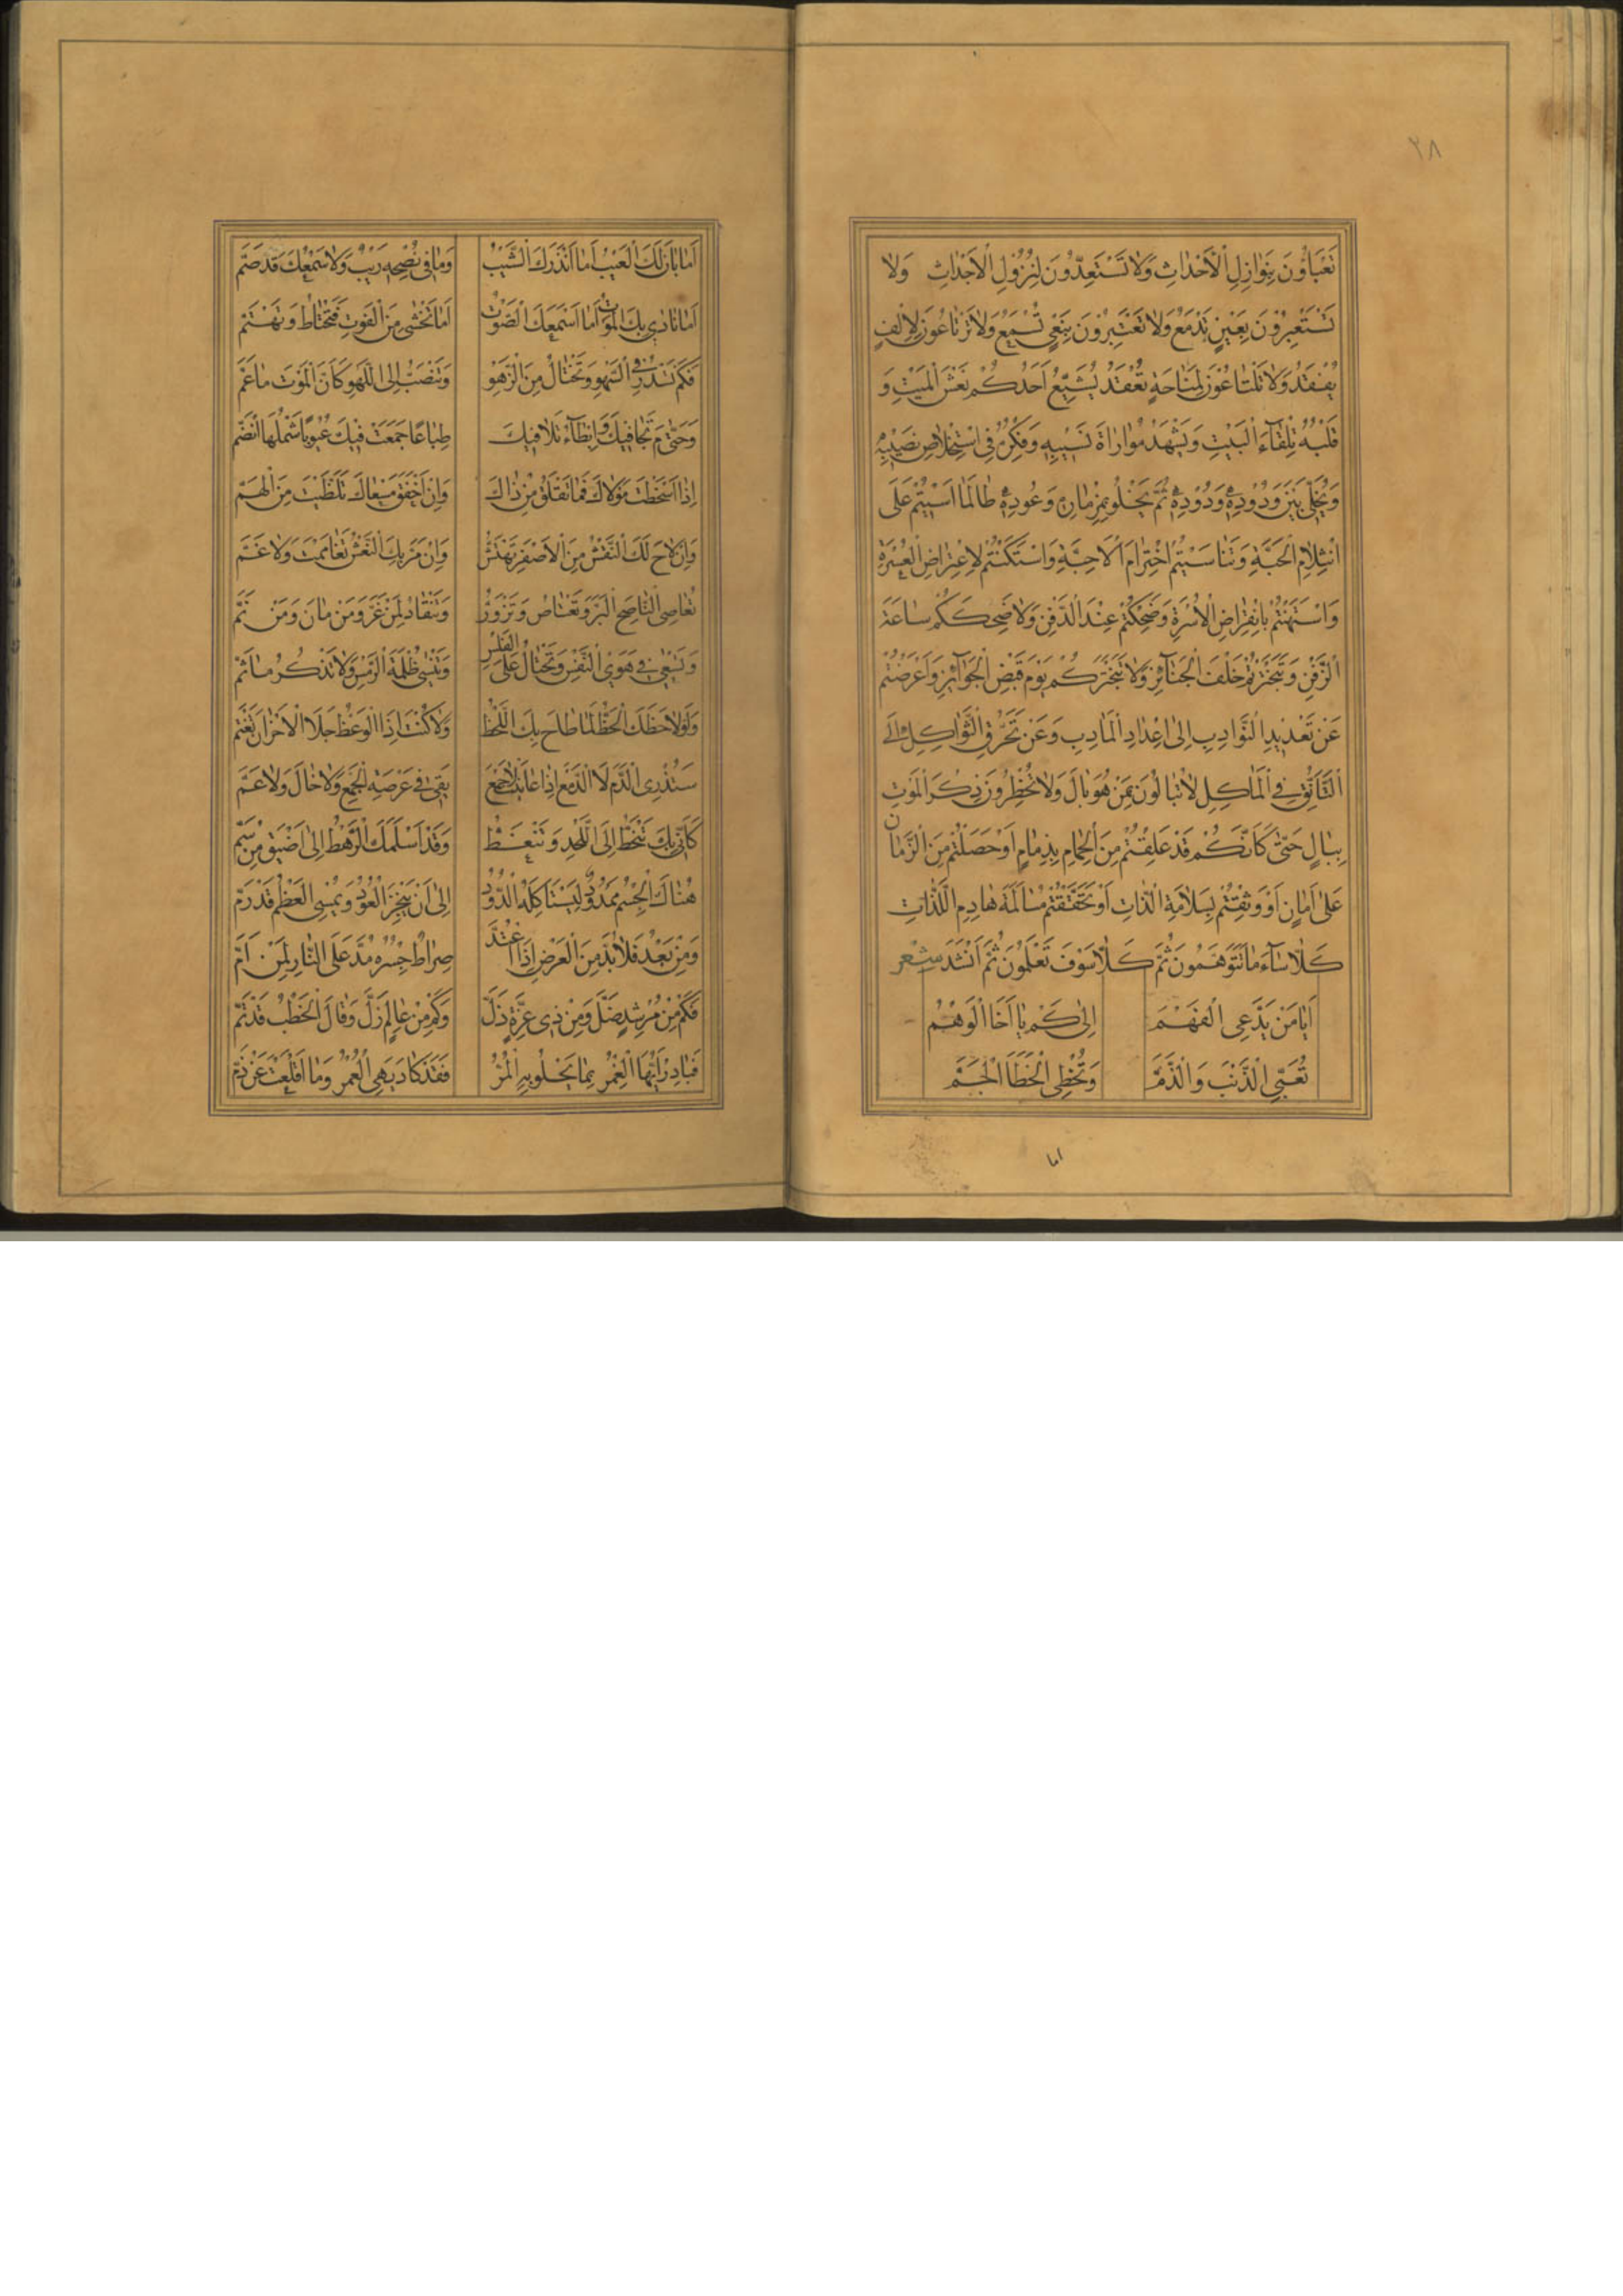 ٢٨
تَعْبَاوُنَ بِنَوَازِلِ الْأَحْدَاثِ وَلَا تَسْتَعِدُّونَ لِنُزُولِ الْأَجْدَاثِ وَلَا
تَسْتَعْبِرُونَ بِعَيْنٍ تَدْمَعُ وَلَا تَعْتَبِرُونَ بِنَعْيٍ تُسْمَعُ وَلَا تَرْتَاعُونَ لِإِلْفٍ
يُفْقَدُ وَلَا تَلْتَاعُونَ لِمَنَاحَةٍ تُعْقَدُ يُشَيِّعُ أَحَدُكُمْ نَعْشَ الْمَيْتِ وَ
قَلْبُهُ تِلْقَاءَ الْبَيْتِ وَيَشْهَدُ مُوَارَاةَ نَسِيبِهِ وَفِكْرُهُ فِي اسْتِخْلَاصِ نَصِيبِهِ
وَيُخَلِّي بَيْنَ وَدُودِهِ وَدُودِهِ ثُمَّ يَخْلُو بِمِزْمَارِهِ وَعُودِهِ طَالَمَا أَسَيْتُمْ عَلَى
انْثِلَامِ الْحَبَّةِ وَتَنَاسَيْتُمُ اخْتِرَامَ الْأَحِبَّةِ وَاسْتَكَنْتُمْ لِاعْتِرَاضِ الْعُسْرَةِ
وَاسْتَهَنْتُمْ بِانْقِرَاضِ الْأُسْرَةِ وَضَحِكْتُمْ عِنْدَ الدَّفْنِ وَلَا ضَحِكَكُمْ سَاعَةَ
الزَّفْنِ وَتَبَخْتَرْتُمْ خَلْفَ الْجَنَائِزِ وَلَا تَبَخْتُرَكُمْ يَوْمَ قَبْضِ الْجَوَائِزِ وَأَعْرَضْتُمْ
عَنْ تَعْدِيدِ النَّوَادِبِ إِلَى إِعْدَادِ الْمَآدِبِ وَعَنْ تَحَرُّقِ الثَّوَاكِلِ إِلَى
التَّأَنُّقِ فِي الْمَآكِلِ لَا تُبَالُونَ بِمَنْ هُوَ بَالٍ وَلَا تُخْطِرُونَ ذِكْرَ الْمَوْتِ
بِبَالٍ حَتَّى كَأَنَّكُمْ قَدْ عَلِقْتُمْ مِنَ الْحِمَامِ بِذِمَامٍ أَوْ حَصَلْتُمْ مِنَ الزَّمَانِ
عَلَى أَمَانٍ أَوْ وَثِقْتُمْ بِسَلَامَةِ الذَّاتِ أَوْ تَحَقَّقْتُمْ مُسَالَمَةَ هَادِمِ اللَّذَّاتِ
كَلَّا سَاءَ مَا تَتَوَهَّمُونَ ثُمَّ كَلَّا سَوْفَ تَعْلَمُونَ ثُمَّ أَنْشَدَ شعر
أَيَا مَنْ يَدَّعِي الْفَهْمَ إِلَى كَمْ يَا أَخَا الْوَهْمِ
تُعَبِّي الذَّنْبَ وَالذَّمَّ وَتُخْطِي الْخَطَأَ الْجَمَّ
اما
أَمَا بَانَ لَكَ الْعَيْبُ أَمَا أَنْذَرَكَ الشَّيْبُ وَمَا فِي نُصْحِهِ رَيْبٌ وَلَا سَمْعُكَ قَدْ صَمَّ
أَمَا نَادَى بِكَ الْمَوْتُ أَمَا أَسْمَعَكَ الصَّوْتُ أَمَا تَخْشَى مِنَ الْفَوْتِ فَتَحْتَاطَ وَتَهْتَمَّ
فَكَمْ تَسْدَرُ فِي السَّهْوِ وَتَخْتَالُ مِنَ الزَّهْوِ وَتَنْصَبُّ إِلَى اللَّهْوِ كَأَنَّ الْمَوْتَ مَا عَمَّ
وَحَتَّى مَ تَجَافِيكَ وَإِبْطَاءُ تَلَافِيكَ طِبَاعًا جَمَعَتْ فِيكَ عُيُوبًا شَمْلُهَا انْضَمَّ
إِذَا أَسْخَطْتَ مَوْلَاكَ فَمَا تَقْلَقُ مِنْ ذَاكَ وَإِنْ أَخْفَقَ مَسْعَاكَ تَلَظَّيْتَ مِنَ الْهَمِّ
وَإِنْ لَاحَ لَكَ النَّقْشُ مِنَ الْأَصْفَرِ تَهْتَشُّ وَإِنْ مَرَّ بِكَ النَّعْشُ تَغَامَمْتَ وَلَا غَمَّ
تُعَاصِي النَّاصِحَ الْبَرَّ وَتَعْتَاصُ وَتَزْوَرُّ وَتَنْقَادُ لِمَنْ غَرَّ وَمَنْ مَانَ وَمَنْ نَمَّ
وَتَسْعَى فِي هَوَى النَّفْسِ وَتَحْتَالُ عَلَى الْفَلْسِ وَتَنْسَى ظُلْمَةَ الرَّمْسِ وَلَا تَذْكُرُ مَا ثَمَّ
وَلَوْ لَاحَظَكَ الْحَظُّ لَمَا طَاحَ بِكَ اللَّحْظُ وَلَا كُنْتَ إِذَا الْوَعْظُ جَلَا الْأَحْزَانَ تَغْتَمُّ
سَتُذْرِي الدَّمَ لَا الدَّمْعَ إِذَا عَايَنْتَ لَا جَمْعَ يَقِي فِي عَرْصَةِ الْجَمْعِ وَلَا خَالَ وَلَا عَمَّ
كَأَنِّي بِكَ تَنْحَطُّ إِلَى اللَّحْدِ وَتَنْغَطُّ وَقَدْ أَسْلَمَكَ الرَّهْطُ إِلَى أَضْيَقَ مِنْ سَمِّ
هُنَاكَ الْجِسْمُ مَمْدُودٌ لِيَسْتَأْكِلَهُ الدُّودُ إِلَى أَنْ يَنْخَرَ الْعُودُ وَيُمْسِي الْعَظْمُ قَدْ رَمَّ
وَمِنْ بَعْدُ فَلَا بُدَّ مِنَ الْعَرْضِ إِذَا اعْتُدَّ صِرَاطٌ جِسْرُهُ مُدَّ عَلَى النَّارِ لِمَنْ أَمَّ
فَكَمْ مِنْ مُرْشِدٍ ضَلَّ وَمِنْ ذِي عِزَّةٍ ذَلَّ وَكَمْ مِنْ عَالِمٍ زَلَّ وَقَالَ الْخَطْبُ قَدْ طَمَّ
فَبَادِرْ أَيُّهَا الْغُمْرُ بِمَا يَحْلُو بِهِ الْمُرُّ فَقَدْ كَادَ يَهِي الْعُمْرُ وَمَا أَقْلَعْتَ عَنْ ذَمِّ